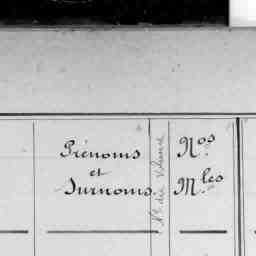 Prénoms
et
Surnoms.
N° du volume
Nos
Mles